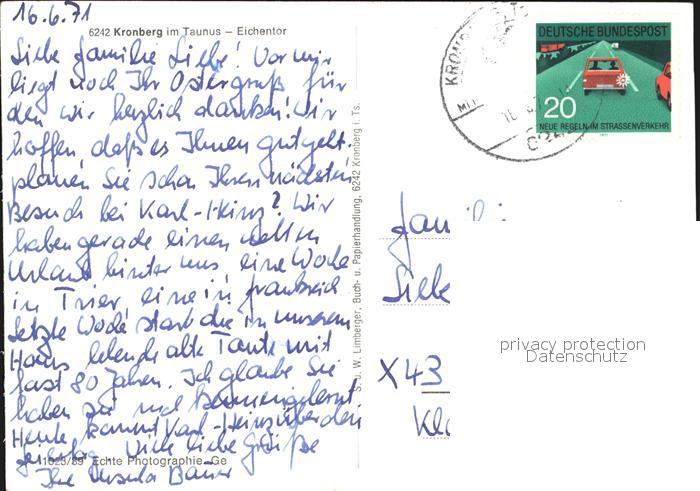 16.6.71
6242 Kronberg im Taunus – Eichentor
Liebe Familie Liebe! Vor mir
liegt noch Ihr Ostergruß für
den wir herzlich danken! Wir
hoffen daß es Ihnen gut geht.
planen Sie schon Ihren nächsten
Besuch bei Karl-Heinz? Wir
haben gerade einen
Urlaub hinter uns eine Woche
in Trier eine in Frankreich
letzte Woche starb die in unserem
Haus lebende alte Tante mit
fast 80 Jahren. Ich glaube Sie
haben sie noch kennengelernt.
Heute kommt Karl-Heinz über den
Viele liebe Grüße
11023/89 Echte Photographie Ge
Ihre Ursula Bauer
S. u. W. Limberger, Buch- u. Papierhandlung, 6242 Kronberg i. Ts.
KRON
DEUTSCHE BUNDESPOST
20
NEUE REGELN IM STRASSENVERKEHR
1971
Fami
Liebe
X 43
Kl
privacy protection
Datenschutz